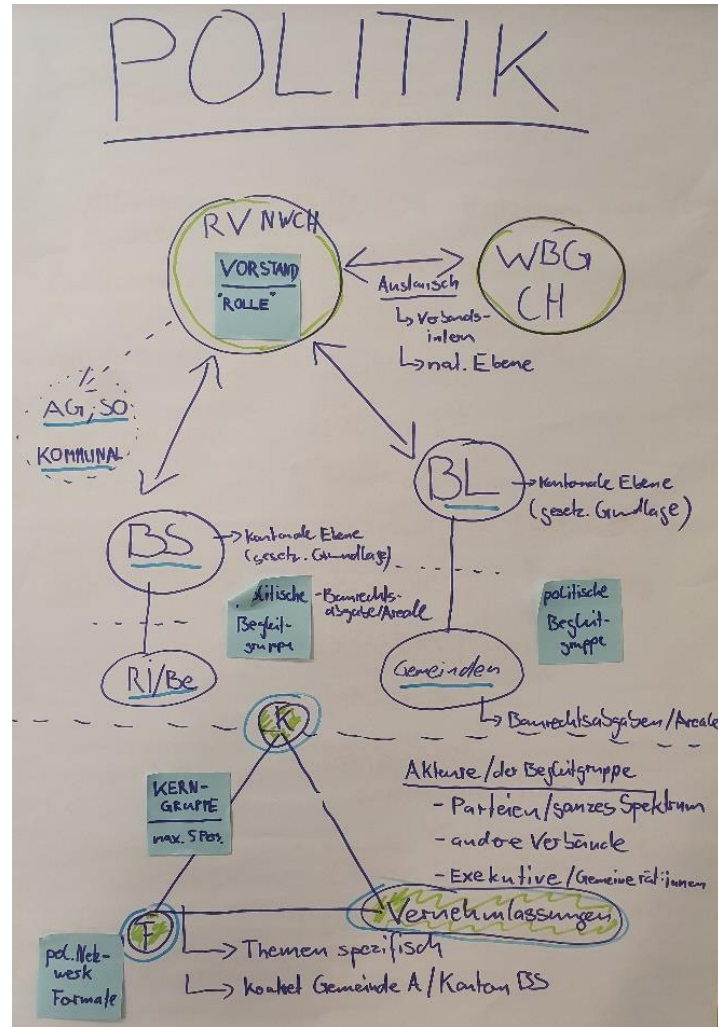 POLITIK
RV NWCH
VORSTAND
"ROLLE"
WBG
CH
Austausch
↳ Verbands-
intern
↳ nat. Ebene
AG, SO
KOMMUNAL
BL
→ kantonale Ebene
(gesetz. Grundlage)
BS
→ kantonale Ebene
(gesetz. Grundlage)
politische
Begleit-
gruppe
- Baurechts-
abgabe/Areale
politische
Begleit-
gruppe
Ri/Be
Gemeinden
↳ Baurechtsabgaben/Areale
K
KERN-
GRUPPE
max. 5 Pers.
Akteure/der Begleitgruppe
- Parteien/ganzes Spektrum
- andere Verbände
- Exekutive/Gemeinerät:innen
Vernehmlassungen
F
pol. Netz-
werk
Formate
↳ Themen spezifisch
↳ konket Gemeinde A/Kanton BS